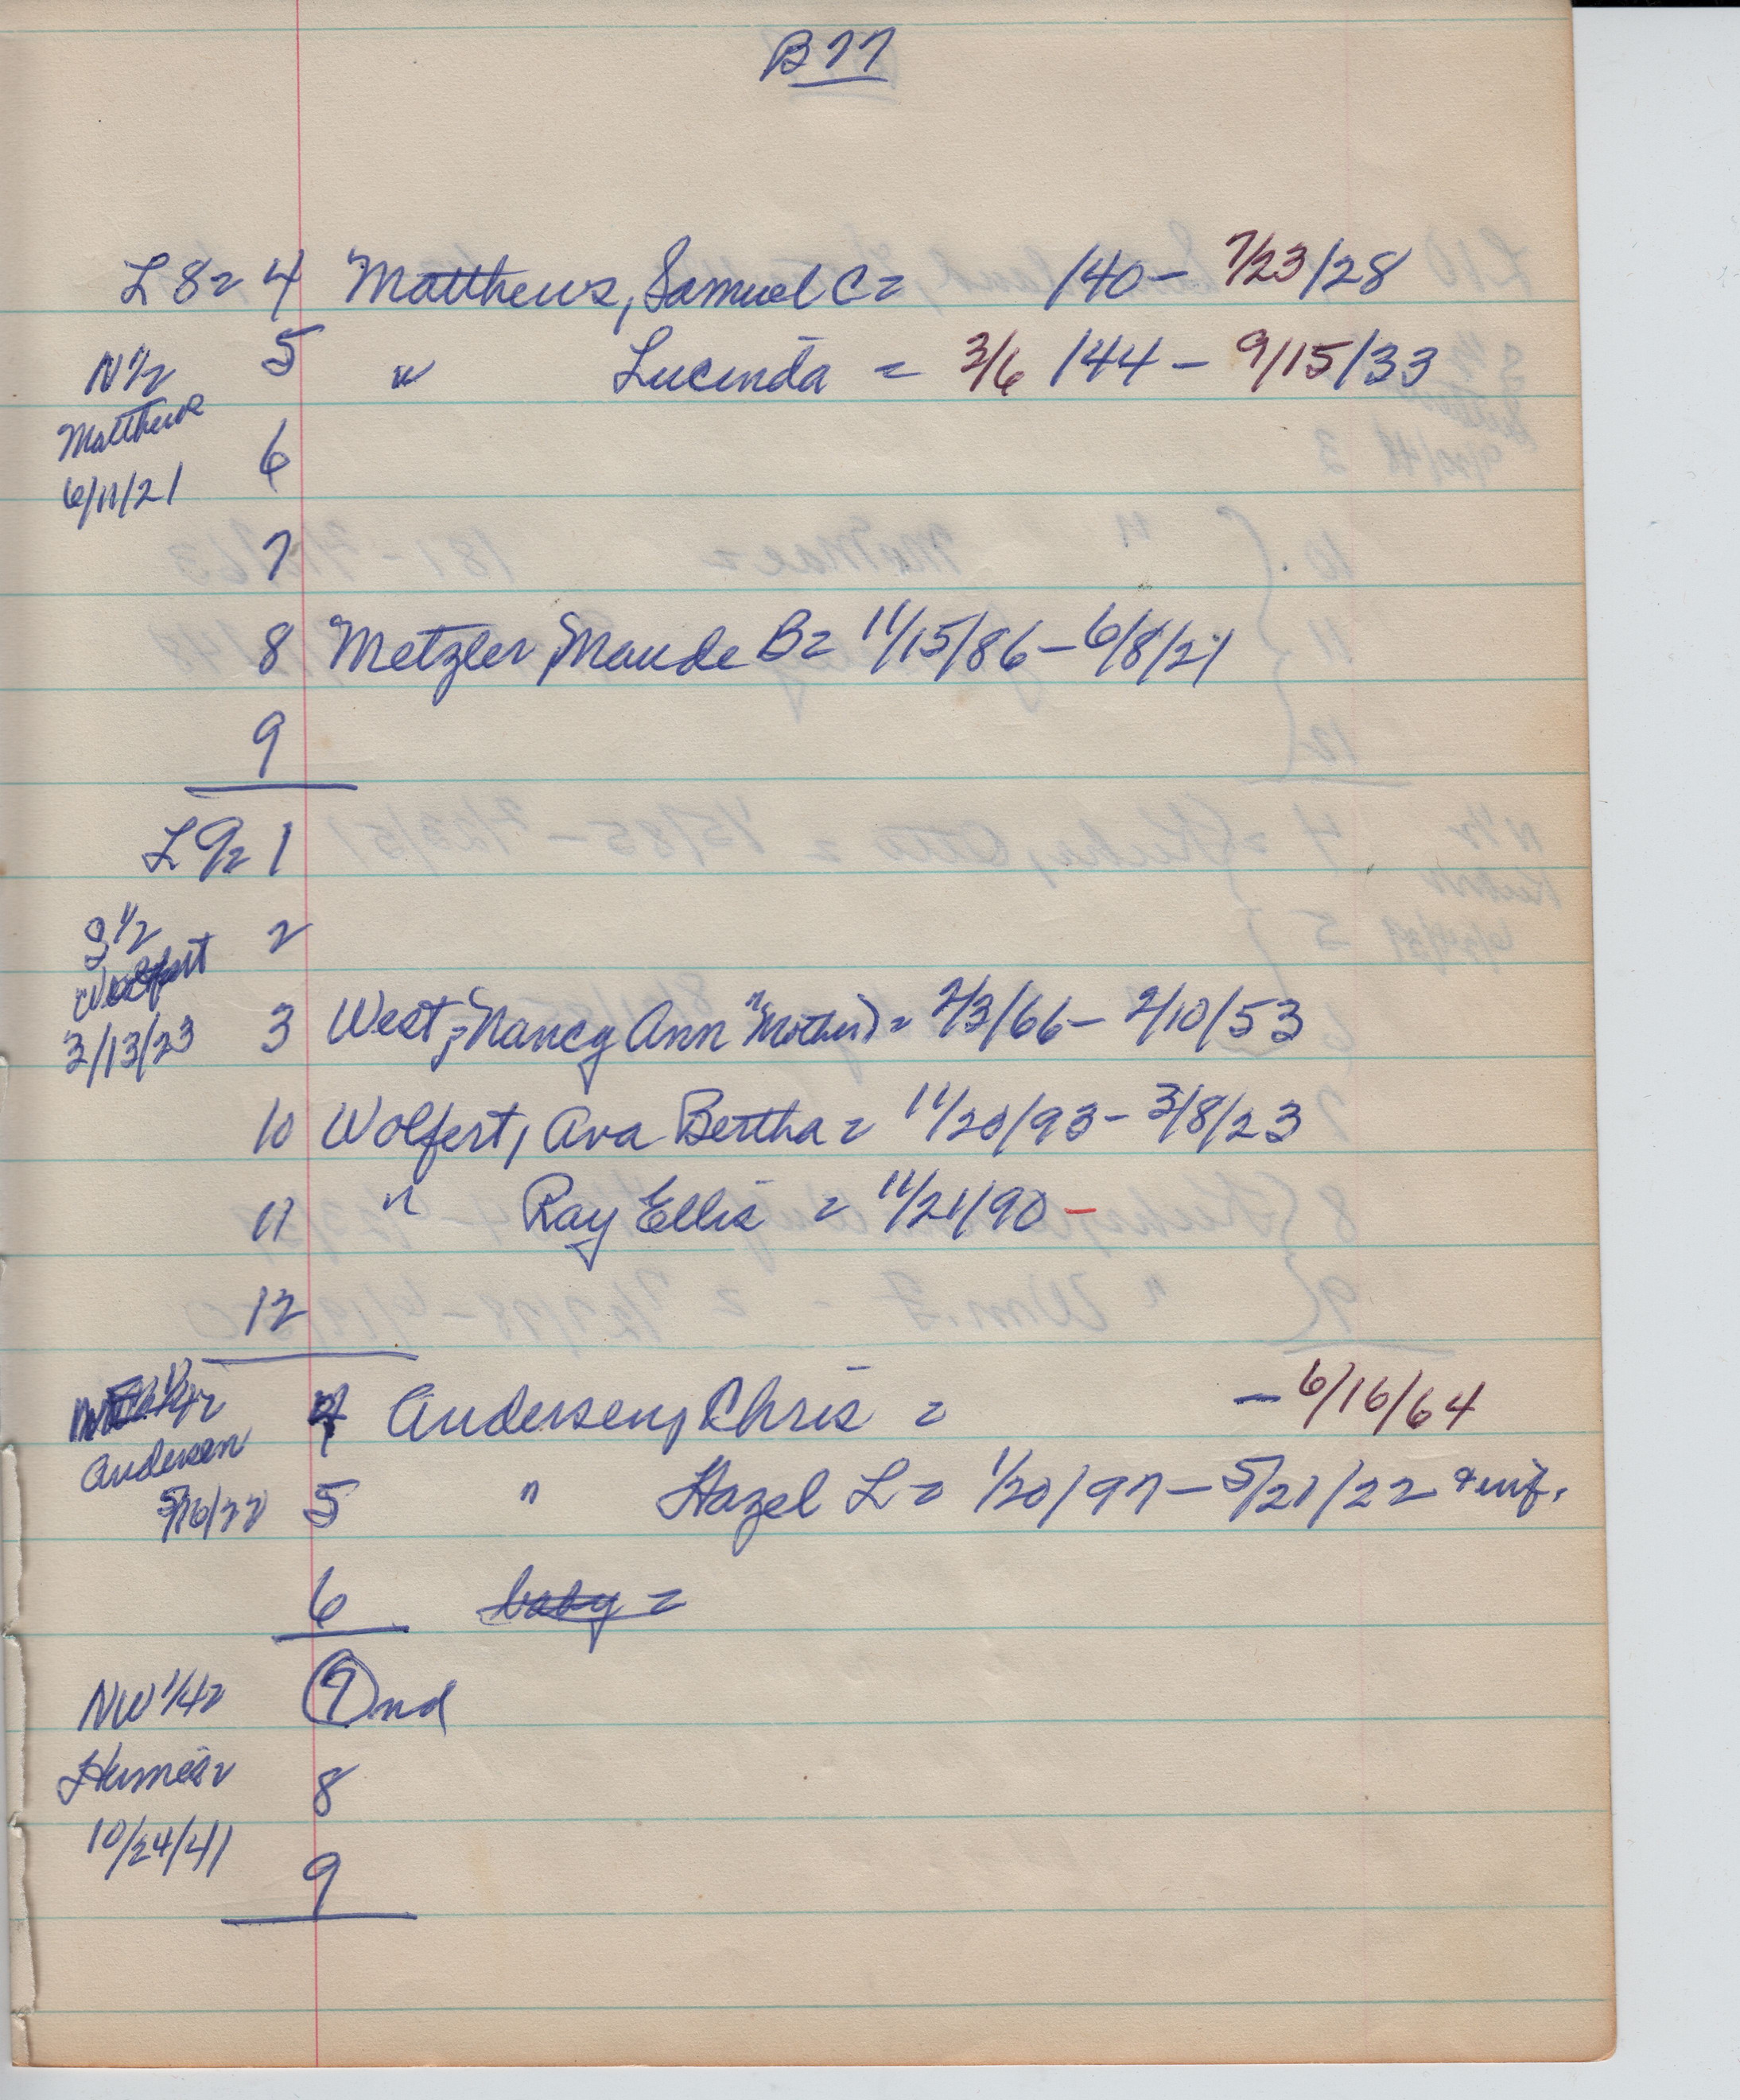 B77
L 8 = 4 Matthews, Samuel C = /40 - 7/23/28
N 1/2 5 " Lucinda = 3/6/44 - 9/15/33
Matthews 6
6/11/21
7
8 Metzler, Maude B = 11/15/86 - 6/8/21
9
L 9 = 1
S 1/2 2
Wolfert
3/13/23 3 West, Nancy Ann "Mother" = 2/3/66 - 2/10/53
10 Wolfert, Ava Bertha = 11/20/93 - 3/8/23
11 " Ray Ellis = 11/21/90 -
12
4 Andersen, Chris = - 6/16/64
Andersen
5/16/22 5 " Hazel L = 1/20/97 - 5/21/22 & inf.
6 baby =
NW 1/4 = 7 nd
Humes = 8
10/24/41 9